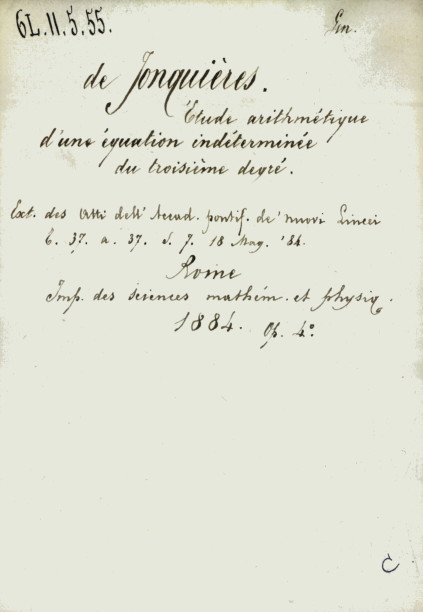 6L.11.5.55.
Gen.
de Jonquières.
Étude arithmétique
d'une équation indéterminée
du troisième degré.
Ext. des Atti dell' Acad. pontif. de' nuovi Lincei
t. 37. a. 37. s. 7. 18 Mag. '84.
Rome
Imp. des sciences mathém. et physiq.
1884. Op. 4º.
C